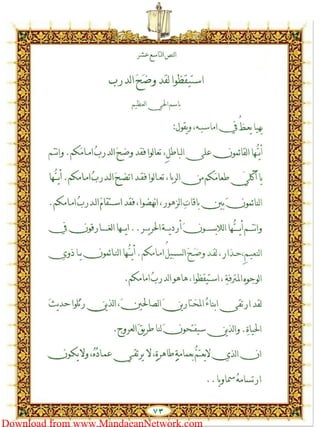 النص التاسع عشر
استيقظوا لقد وضح الدرب
باسم الحي العظيم
يهيا يعظ في اماسيه، ويقول:
أيها القائمون على الباطل، تعالوا فقد وضح الدرب امامكم. وانتم
يا آكلي طعامكم من الربا، تعالوا فقد اتضح الدرب امامكم. أيها
النائمون بين باقات الزهور، انهضوا، فقد استقام الدرب امامكم.
وانتم أيها اللابسون أردية الحرير.. ايها الغارقون في
النعيم، حذار، لقد وضح السبيل امامكم. أيها النائمون يا ذوي
الوجوه المترفة، استيقظوا، ها هو الدرب امامكم.
لقد ارتقى ابناء المختارين الصالحين، الذين رتلوا حديث
الحياة. والذين سيفتحون لنا طريق العروج.
ان الذي لا يعتم بعمامة طاهرة، لا يرتقي عماده، ولا يكون
ارتسامه سماويا..
٧٣
Download from www.MandaeanNetwork.com